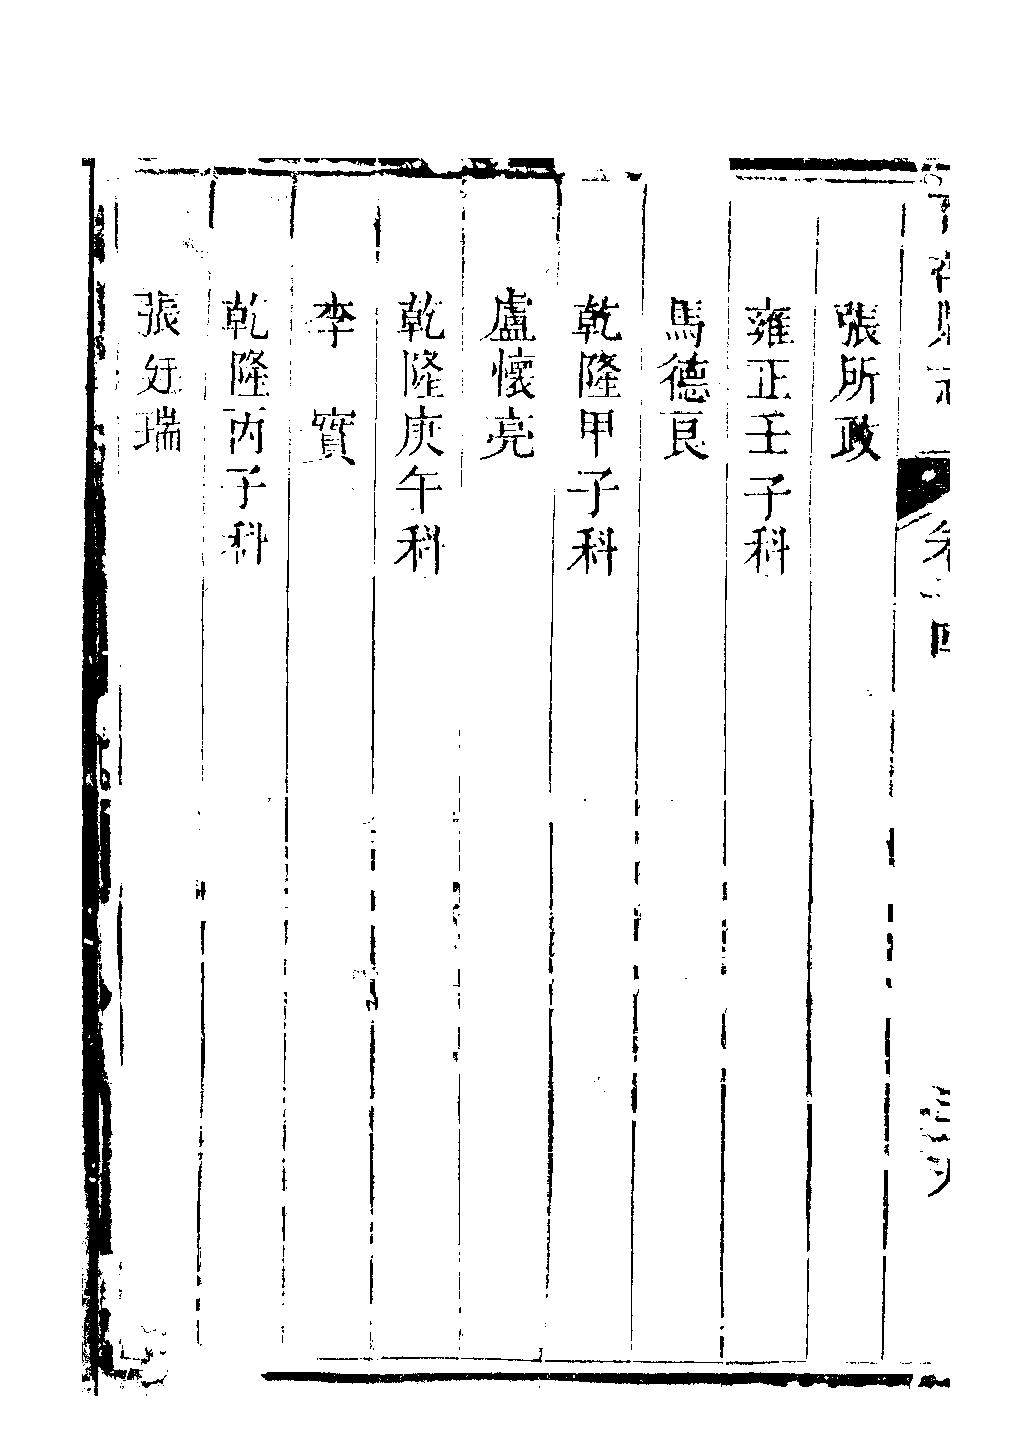 張所政
雍正壬子科
馬德良
乾隆甲子科
盧懷亮
乾隆庚午科
李實
乾隆丙子科
張瑞